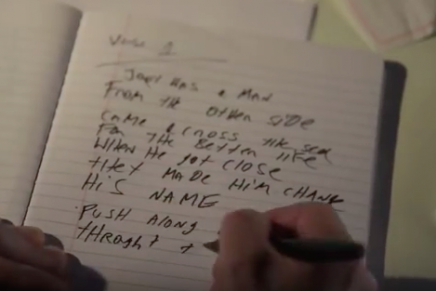 Verse 1
Joey was a man
From the other side
Came across the sea
For the better life
When he got close
they made him change
His NAME
Push Along
throght t